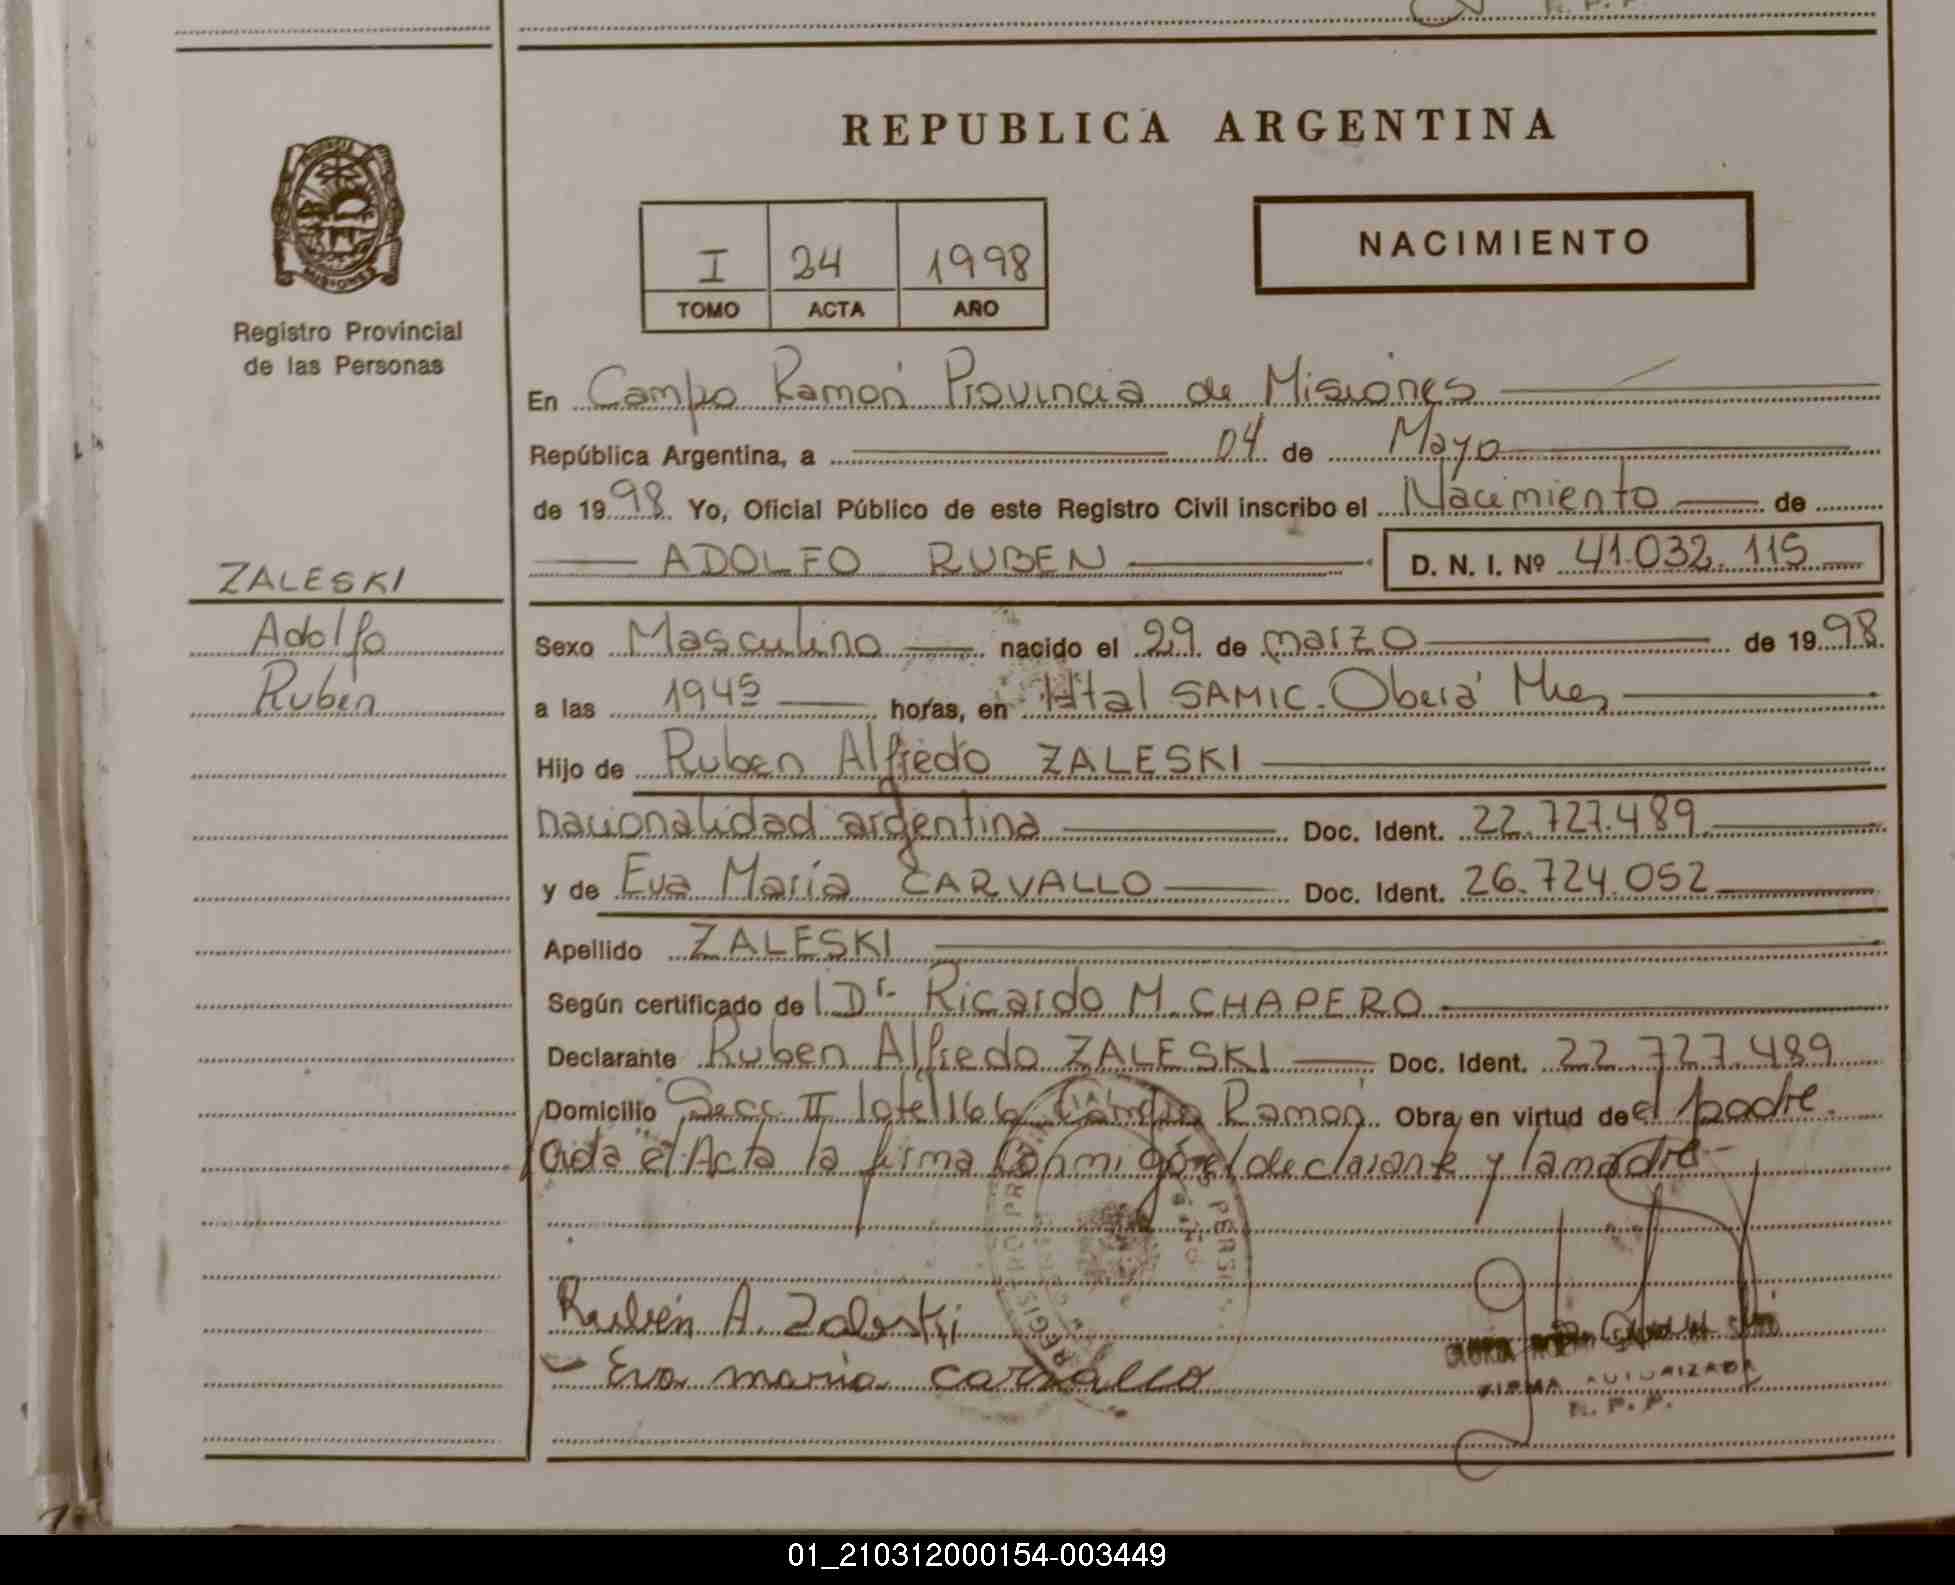 REPUBLICA ARGENTINA
PROVINCIA
MISIONES
Registro Provincial
de las Personas
I 24 1998
TOMO ACTA AÑO
NACIMIENTO
En Campo Ramón Provincia de Misiones
República Argentina, a 04 de Mayo
de 1998 Yo, Oficial Público de este Registro Civil inscribo el Nacimiento de
ADOLFO RUBEN D. N. I. Nº 41.032.115
ZALESKI
Adolfo
Rubén
Sexo Masculino nacido el 29 de marzo de 1998.
a las 1945 horas, en Htal SAMIC. Oberá Mnes
Hijo de Ruben Alfredo ZALESKI
nacionalidad argentina Doc. Ident. 22.727.489
y de Eva María CARVALLO Doc. Ident. 26.724.052
Apellido ZALESKI
Según certificado de Dr. Ricardo M. CHAPERO
Declarante Ruben Alfredo ZALESKI Doc. Ident. 22.727.489
Domicilio Secc. II lote 166 Campo Ramón Obra en virtud de el padre.
leida el Acta la firma conmigo el declarante y la madre
Rubén A. Zaleski
Eva maria carvallo
FIRMA AUTORIZADA
R. P. P.
01_210312000154-003449